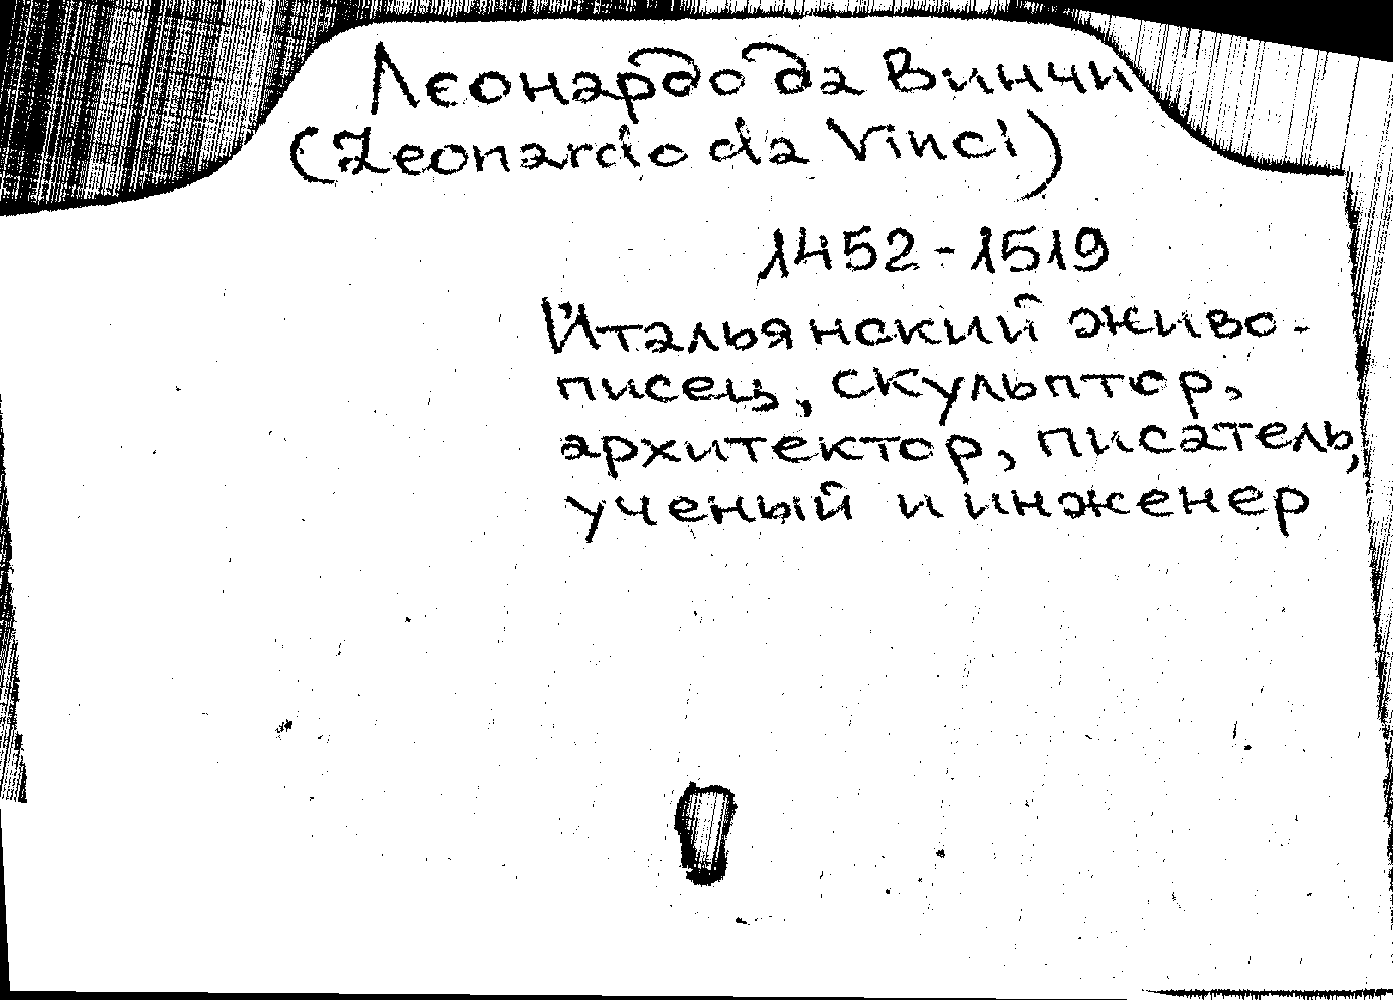 Леонардо да Винчи
(Leonardo da Vinci)
1452-1519
Итальянский живо-
писец, скульптор,
архитектор, писатель,
ученый и инженер